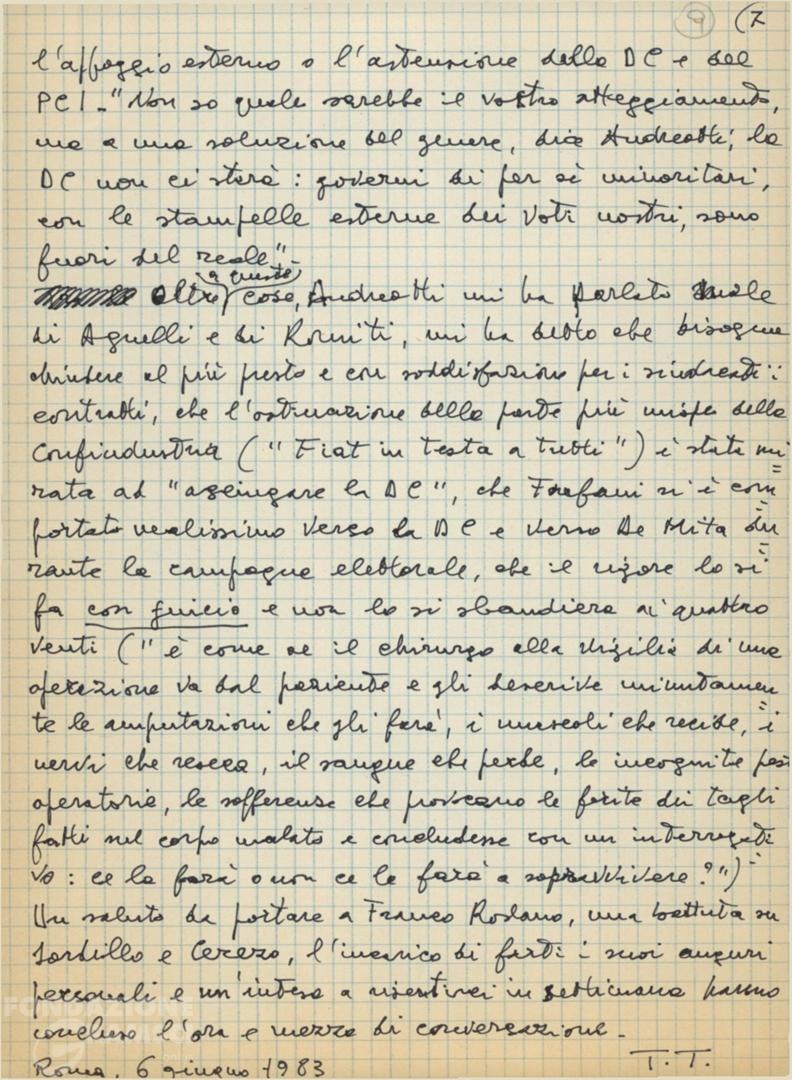 9 (7
l'appoggio esterno o l'astensione della DC e del
PCI - "Non so quale sarebbe il vostro atteggiamento,
ma a una soluzione del genere, dice Andreotti, la
DC non ci sterà: governi di per sè minoritari,
con le stampelle esterne dei voti nostri, sono
fuori del reale".
a queste
Oltre cose, Andreotti mi ha parlato male
di Agnelli e di Romiti, mi ha detto che bisogna
chiudere al più presto e con soddisfazione per i sindacati i
contratti, che l'ostinazione della parte più miope della
Confindustria ("Fiat in testa a tutti") è stata mi
rata ad "asciugare la DC", che Fanfani si è com
portato vealissimo verso la DC e verso De Mita du
rante la campagna elettorale, che il rigore lo si
fa con juicio e non lo si sbandiera ai quattro
venti ("è come se il chirurgo alla vigilia di una
operazione va dal paziente e gli descrive minutamen
te le amputazioni che gli farà, i muscoli che recide, i
nervi che reseca, il sangue che perde, le incognite post
operatorie, le sofferenze che provocano le ferite dei tagli
fatti nel corpo malato e concludesse con un interrogati
vo: ce la farà o non ce la farà a sopravvivere?")
Un saluto da portare a Franco Rodano, una battuta su
Sordillo e Cerezo, l'incarico di farti i suoi auguri
personali e un'intesa a risentirci in settimana hanno
concluso l'ora e mezza di conversazione -
Roma, 6 giugno 1983 T.T.